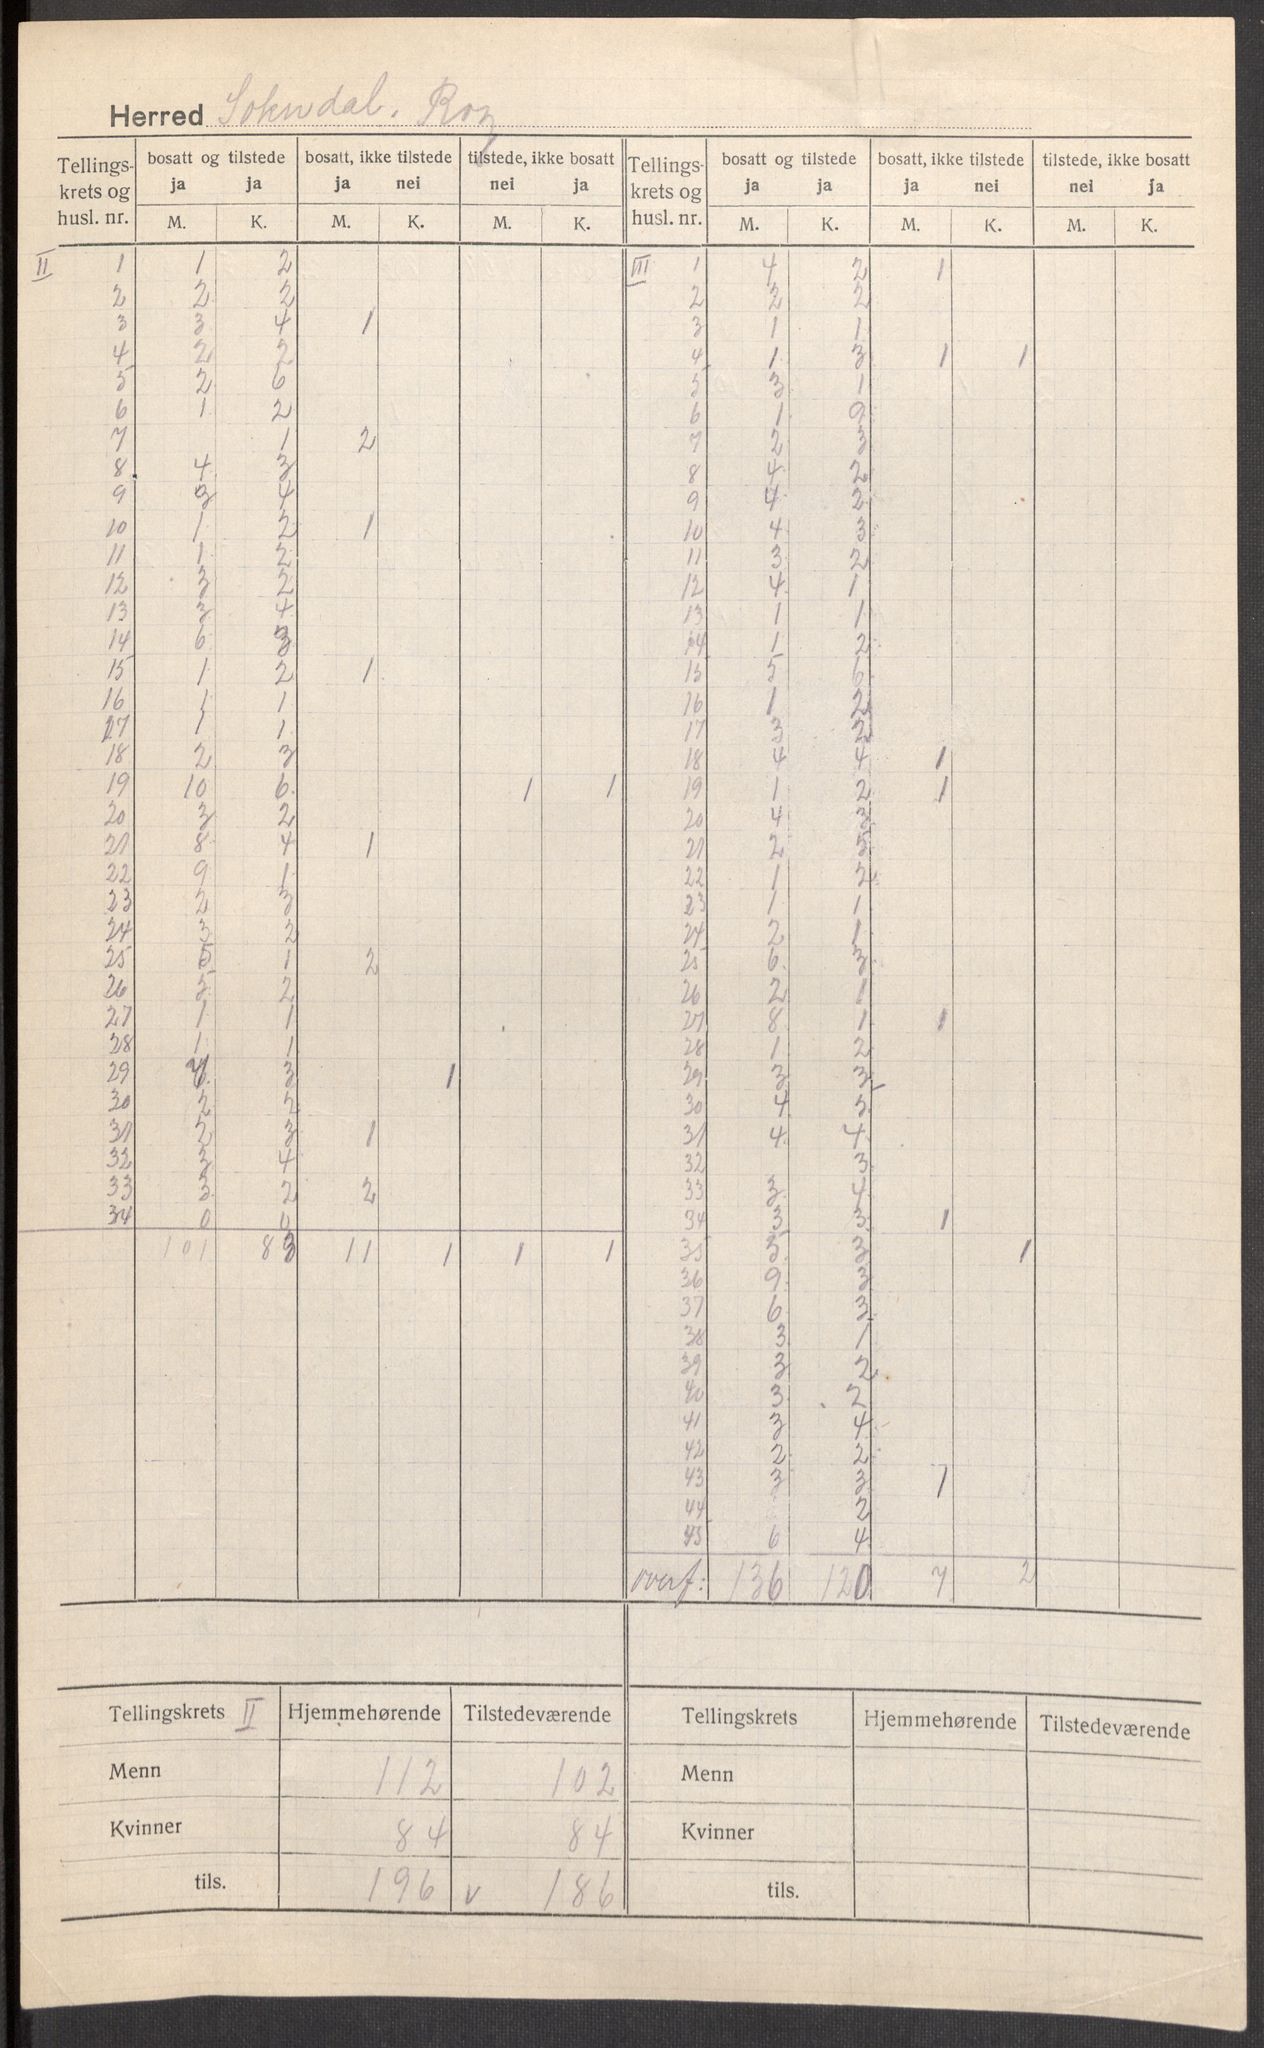 Herred Sokndal. Rog
Tellings- krets og husl. nr. | bosatt og tilstede | bosatt, ikke tilstede | tilstede, ikke bosatt | Tellings- krets og husl. nr. | bosatt og tilstede | bosatt, ikke tilstede | tilstede, ikke bosatt
ja ja | ja nei | nei ja | ja ja | ja nei | nei ja
M. K. | M. K. | M. K. | M. K. | M. K. | M. K.
II 1 1 2 | III 1 4 2 1
2 2 2 | 2 2 2
3 3 4 1 | 3 1 1
4 2 2 | 4 1 3 1 1
5 2 6 | 5 3 1
6 1 2 | 6 1 9
7 1 2 | 7 2 3
8 4 3 | 8 4 2
9 3 4 | 9 4 2
10 1 2 1 | 10 4 3
11 1 2 | 11 3 2
12 3 2 | 12 4 1
13 3 4 | 13 1 1
14 6 3 | 14 1 2
15 1 2 1 | 15 5 6
16 1 1 | 16 1 2
27 1 1 | 17 3 2
18 2 3 | 18 4 4 1
19 10 6 1 1 | 19 1 2 1
20 3 2 | 20 4 3
21 8 4 1 | 21 2 5
22 9 1 | 22 1 2
23 2 3 | 23 1 1
24 3 2 | 24 2 1
25 5 1 2 | 25 6 3
26 5 2 | 26 2 1
27 1 1 | 27 8 1 1
28 1 1 | 28 1 2
29 3 1 | 29 3 3
30 2 2 | 30 4 5
31 2 3 1 | 31 4 4
32 3 4 | 32 3
33 3 2 2 | 33 3 4
34 0 0 | 34 3 3 1
101 83 11 1 1 1 | 35 5 3 1
36 9 3
37 6 3
38 3 1
39 3 2
40 3 2
41 3 4
42 2 2
43 3 3 1
44 2
45 6 4
overf: 136 120 7 2
Tellingskrets II | Hjemmehørende | Tilstedeværende | Tellingskrets | Hjemmehørende | Tilstedeværende
Menn 112 102 | Menn
Kvinner 84 84 | Kvinner
tils. 196 v 186 | tils.